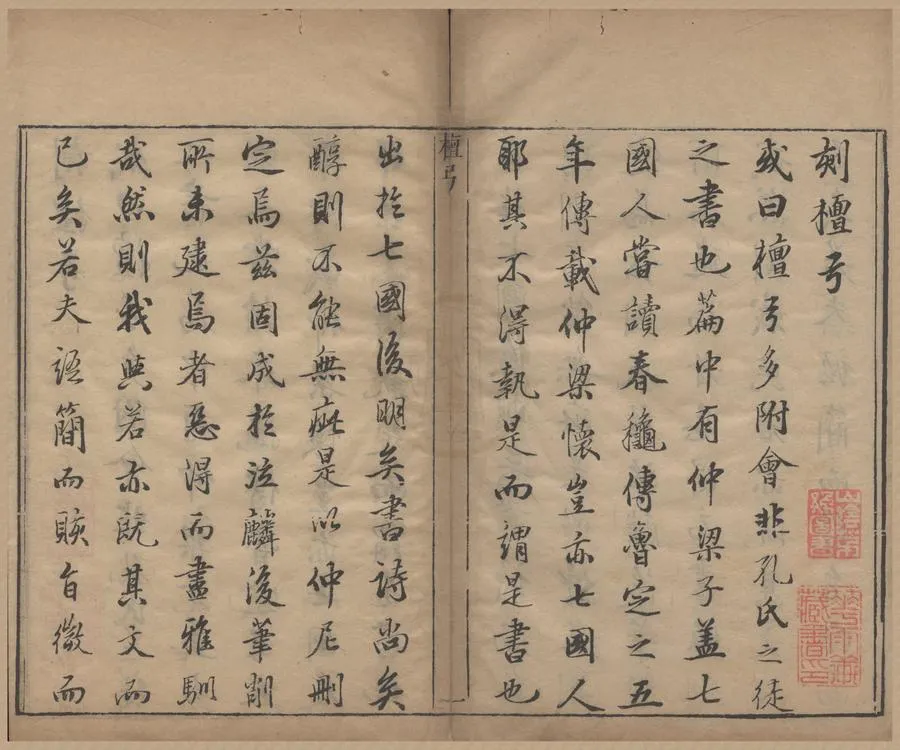 刻檀弓
或曰檀弓多附會悲孔氏之徒
之書也篇中有仲梁子盖七
國人嘗讀春龝傳魯定之五
年傳載仲梁懷豈亦七國人
耶其不得執是而謂是書也
檀弓
出於七國後明矣書詩尚矣
醇則不能無疵是以仲尼刪
定焉茲固成於泣麟後筆削
所未建焉者惡得而盡雅馴
哉然則我與若亦既其文而
已矣若夫語簡而賅旨微而
藏書印